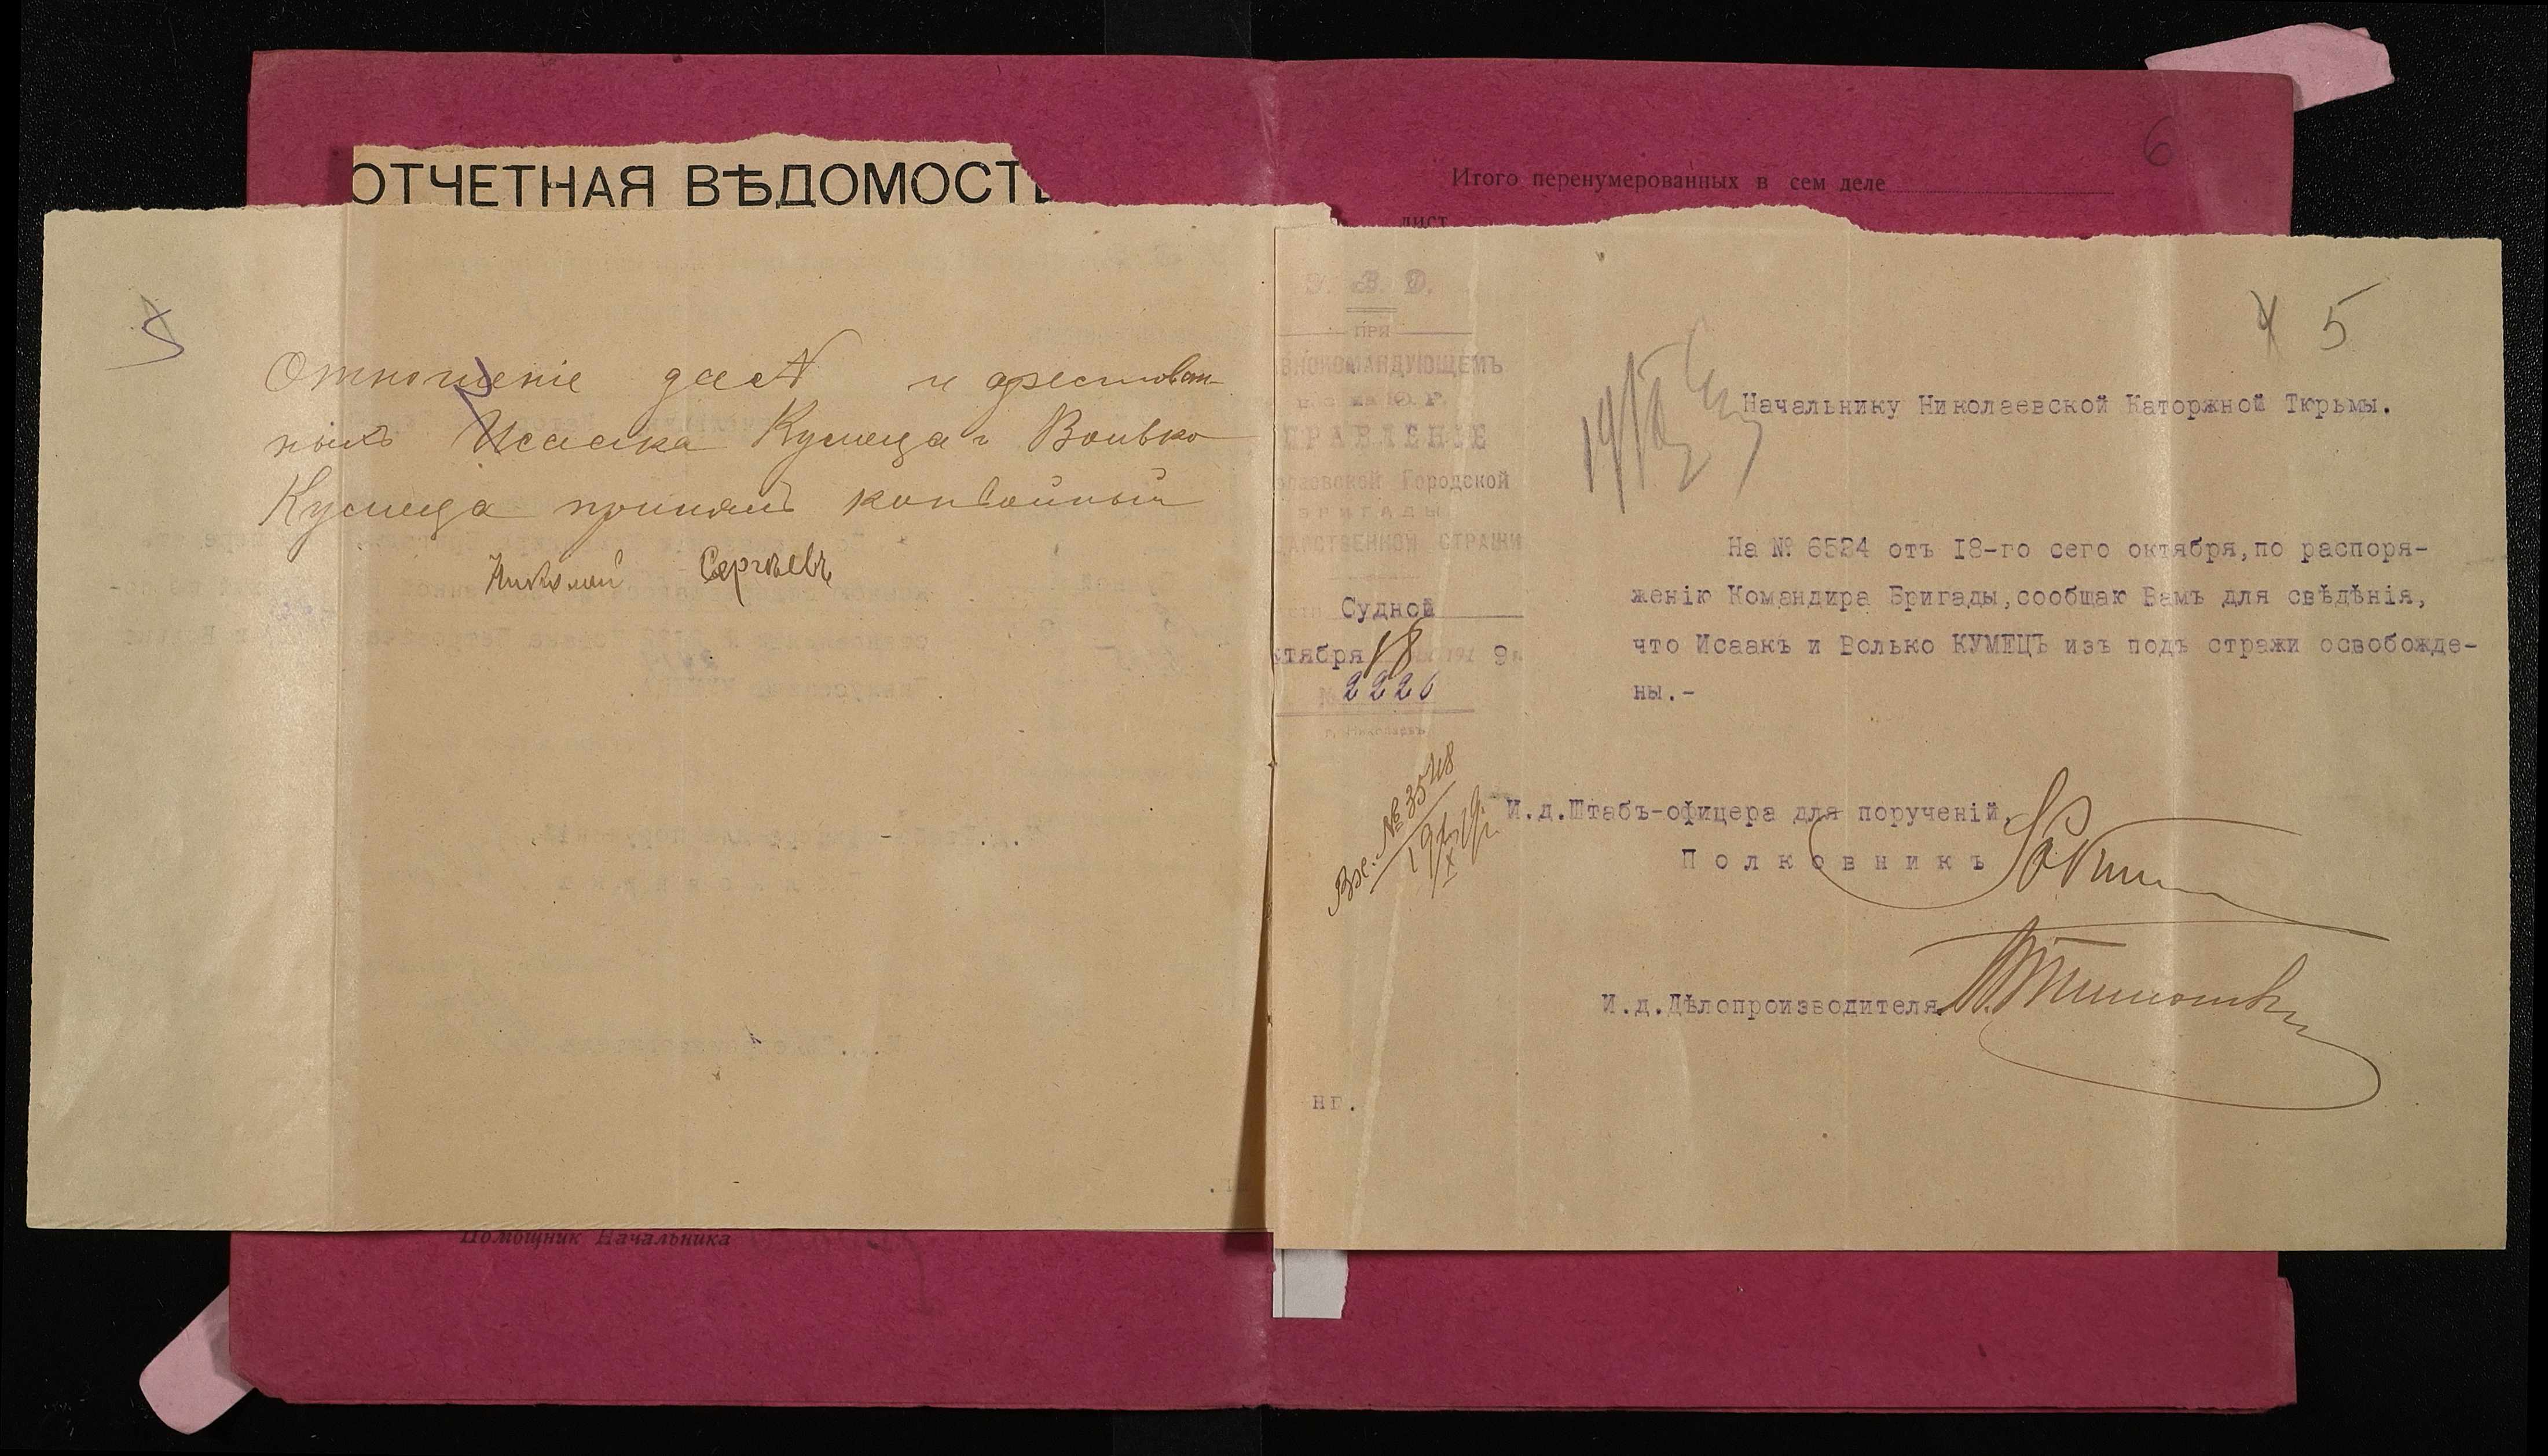 ОТЧЕТНАЯ ВѢДОМОСТЬ
5
Отношеніе и арестован-
ныхъ Исаака Кумеца и Волько
Кумеца принялъ конвойный
Николай Сергѣевъ
Помощник Начальника
6
Итого перенумерованных в сем деле
лист
В. Д.
ПРИ
ВНОКОМАНДУЮЩЕМЪ
на Ю. Г.
ПРАВЛЕНІЕ
олаевской Городской
БРИГАДЫ
ДАРСТВЕННОЙ СТРАЖИ
Судной
ктября 18 191 9 г.
№ 2226
г. Николаевъ
Вх. № 3548
19/X 19 г.
4 5
19/X
Начальнику Николаевской Каторжной Тюрьмы.
На № 6524 отъ 18-го сего октября, по распоря-
женію Командира Бригады, сообщаю Вамъ для свѣдѣнія,
что Исаакъ и Волько КУМЕЦЪ изъ подъ стражи освобожде-
ны.-
И.д.Штабъ-офицера для порученій,
Полковникъ
И.д.Дѣлопроизводителя
нг.